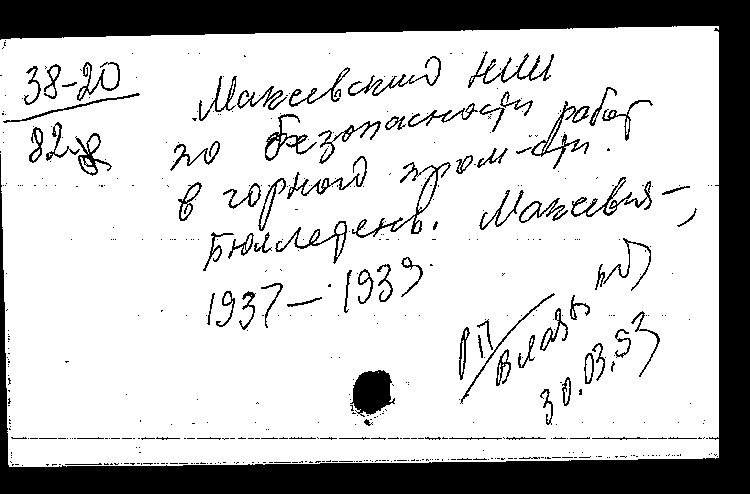 38-20
82
Макеевский НИИ
по безопасности работ
в горной пром-сти.
Бюллетень. Макеевка,
1937 — 1939
РП
30.03.93